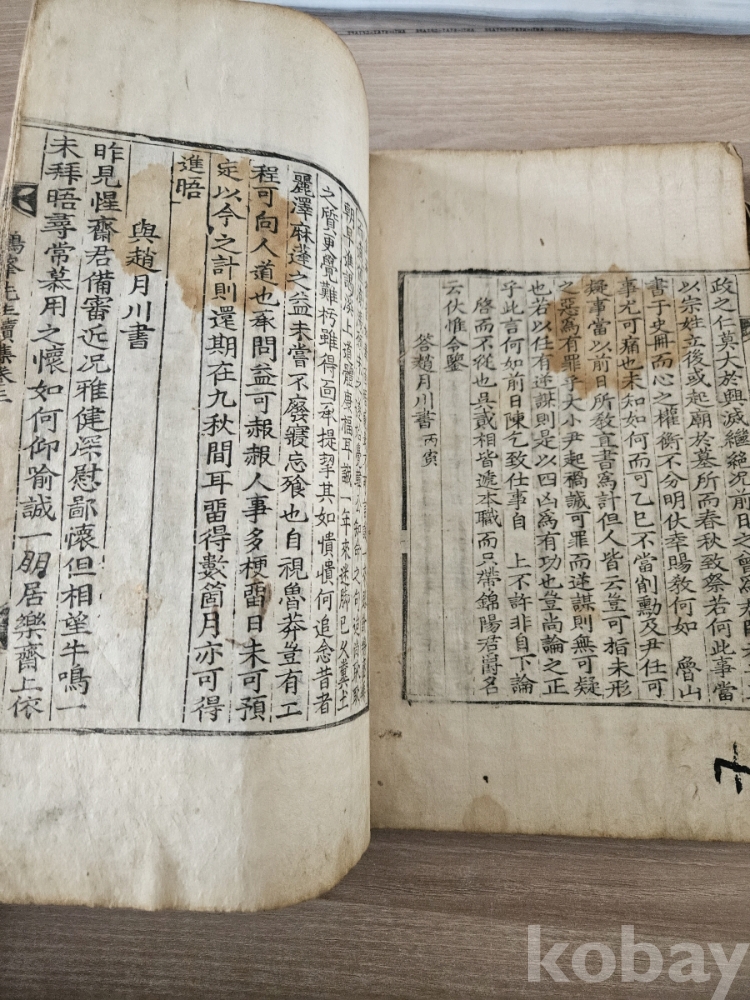 政之仁莫大於興滅繼絕況前日之
以宗姓立後或起廟於墓所而春秋致祭若何此事當
書于史冊而心之權衡不分明伏幸賜敎何如 魯山
事尤可痛也未知如何而可乙巳不當削勳及尹任可
疑事當以前日所敎直書爲計但人皆云豈可指未形
之惡爲有罪乎大小尹起禍誠可罪而逆謀則無可疑
也若以任有逆謀則是以四凶爲有功也豈尚論之正
乎此言何如前日陳乞致仕事自 上不許非自下論
啓而不從也具相皆遞本職而只帶錦陽君爵名
云伏惟令鑒
答趙月川書 丙寅
溪上道體康福耳誠一年來迷
之質更覺難朽雖得面承提挈其如憒憒何追念昔者
麗澤麻蓬之益未嘗不廢寢忘飱也自視魯莽豈有工
程可向人道也承問益可赧赧人事多梗留日未可預
定以今之計則還期在九秋間耳留得數箇月亦可得
進晤
與趙月川書
昨見惺齋君備審近況雅健深慰鄙懷但相望牛鳴一
未拜晤尋常慕用之懷如何仰喻誠一朋居樂齋上依
鶴峯先生續集卷三
kobay